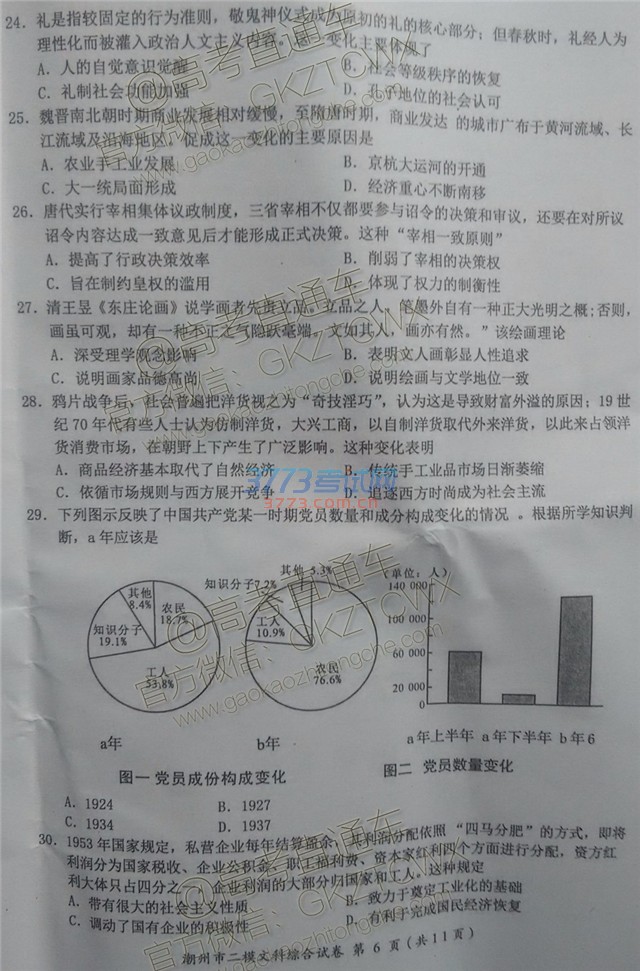 24. 礼是指较固定的行为准则，敬鬼神仪式成为原初的礼的核心部分；但春秋时，礼经人为
理性化而被灌入政治人文主义内容。这一变化主要体现了
A. 人的自觉意识觉醒 B. 社会等级秩序的恢复
C. 礼制社会功能加强 D. 孔子地位的社会认可
25. 魏晋南北朝时期商业发展相对缓慢，至隋唐时期，商业发达 的城市广布于黄河流域、长
江流域及沿海地区。促成这一变化的主要原因是
A. 农业手工业发展 B. 京杭大运河的开通
C. 大一统局面形成 D. 经济重心不断南移
26. 唐代实行宰相集体议政制度，三省宰相不仅都要参与诏令的决策和审议，还要在对所议
诏令内容达成一致意见后才能形成正式决策。这种“宰相一致原则”
A. 提高了行政决策效率 B. 削弱了宰相的决策权
C. 旨在制约皇权的滥用 D. 体现了权力的制衡性
27. 清王昱《东庄论画》说学画者先贵立品。立品之人，笔墨外自有一种正大光明之概；否则，
画虽可观，却有一种不正之气隐跃毫端。文如其人，画亦有然。”该绘画理论
A. 深受理学观念影响 B. 表明文人画彰显人性追求
C. 说明画家品德高尚 D. 说明绘画与文学地位一致
28. 鸦片战争后，社会普遍把洋货视之为“奇技淫巧”，认为这是导致财富外溢的原因；19世
纪70年代有些人士认为仿制洋货，大兴工商，以自制洋货取代外来洋货，以此来占领洋
货消费市场，在朝野上下产生了广泛影响。这种变化表明
A. 商品经济基本取代了自然经济 B. 传统手工业品市场日渐萎缩
C. 依循市场规则与西方展开竞争 D. 追逐西方时尚成为社会主流
29. 下列图示反映了中国共产党某一时期党员数量和成分构成变化的情况 。根据所学知识判
断，a年应该是
其他
8.4%
农民
18.7%
知识分子
19.1%
工人
53.8%
a年
知识分子7.2%
其他 5.3%
工人
10.9%
农民
76.6%
b年
图一 党员成份构成变化
(单位：人)
140 000
100 000
60 000
20 000
0
a年上半年 a年下半年 b年6
图二 党员数量变化
A. 1924 B. 1927
C. 1934 D. 1937
30. 1953年国家规定，私营企业每年结算盈余，其利润分配依照“四马分肥”的方式，即将
利润分为国家税收、企业公积金、职工福利费、资本家红利四个方面进行分配，资方红
利大体只占四分之一，企业利润的大部分归国家和工人。这种规定
A. 带有很大的社会主义性质 B. 致力于奠定工业化的基础
C. 调动了国有企业的积极性 D. 有利于完成国民经济恢复
潮州市二模文科综合试卷 第 6 页(共11页)
@高考直通车
官方微信：GKZTCWX
www.gaokaozhongche.com
@高考直通车
官方微信：GKZTCWX
3773考试网
3773.com.cn
@高考直通车
官方微信：GKZTCWX
www.gaokaozhongche.com